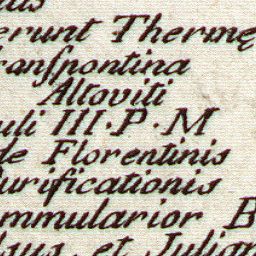 erunt Thermę
ranſpontina
Altoviti
uli III·P·M
de Florentinis
urificationis
mmularior B
et Julian